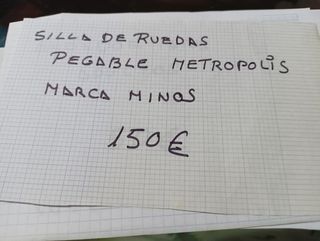 SILLA DE RUEDAS
PEGABLE METROPOLIS
MARCA MINOS
150€